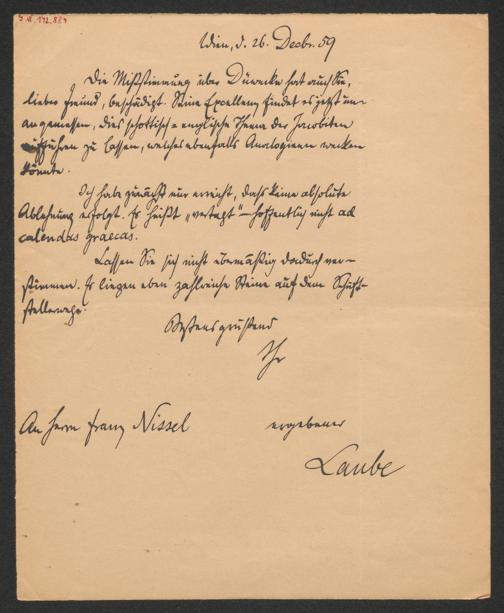 Wien, d. 26. Decbr. 59
Die Mißstimmung über Düweke hat auch Sie,
lieber Freund, beschädigt. Seine Excellenz findet es jetzt un-
angemessen, dies schottisch-englische Thema der Jacobiten
aufführen zu lassen, welches ebenfalls Analogieen wecken
könnte.
Ich habe zunächst nur erreicht, daß keine absolute
Ablehnung erfolgt. Es heißt „vertagt" – hoffentlich nicht ad
calendas graecas.
Lassen Sie sich nicht übermäßig dadurch ver-
stimmen. Es liegen eben zahlreiche Steine auf dem Schrift-
stellerwege.
Bestens grüßend
Ihr
An Herrn Franz Nissel
ergebener
Laube